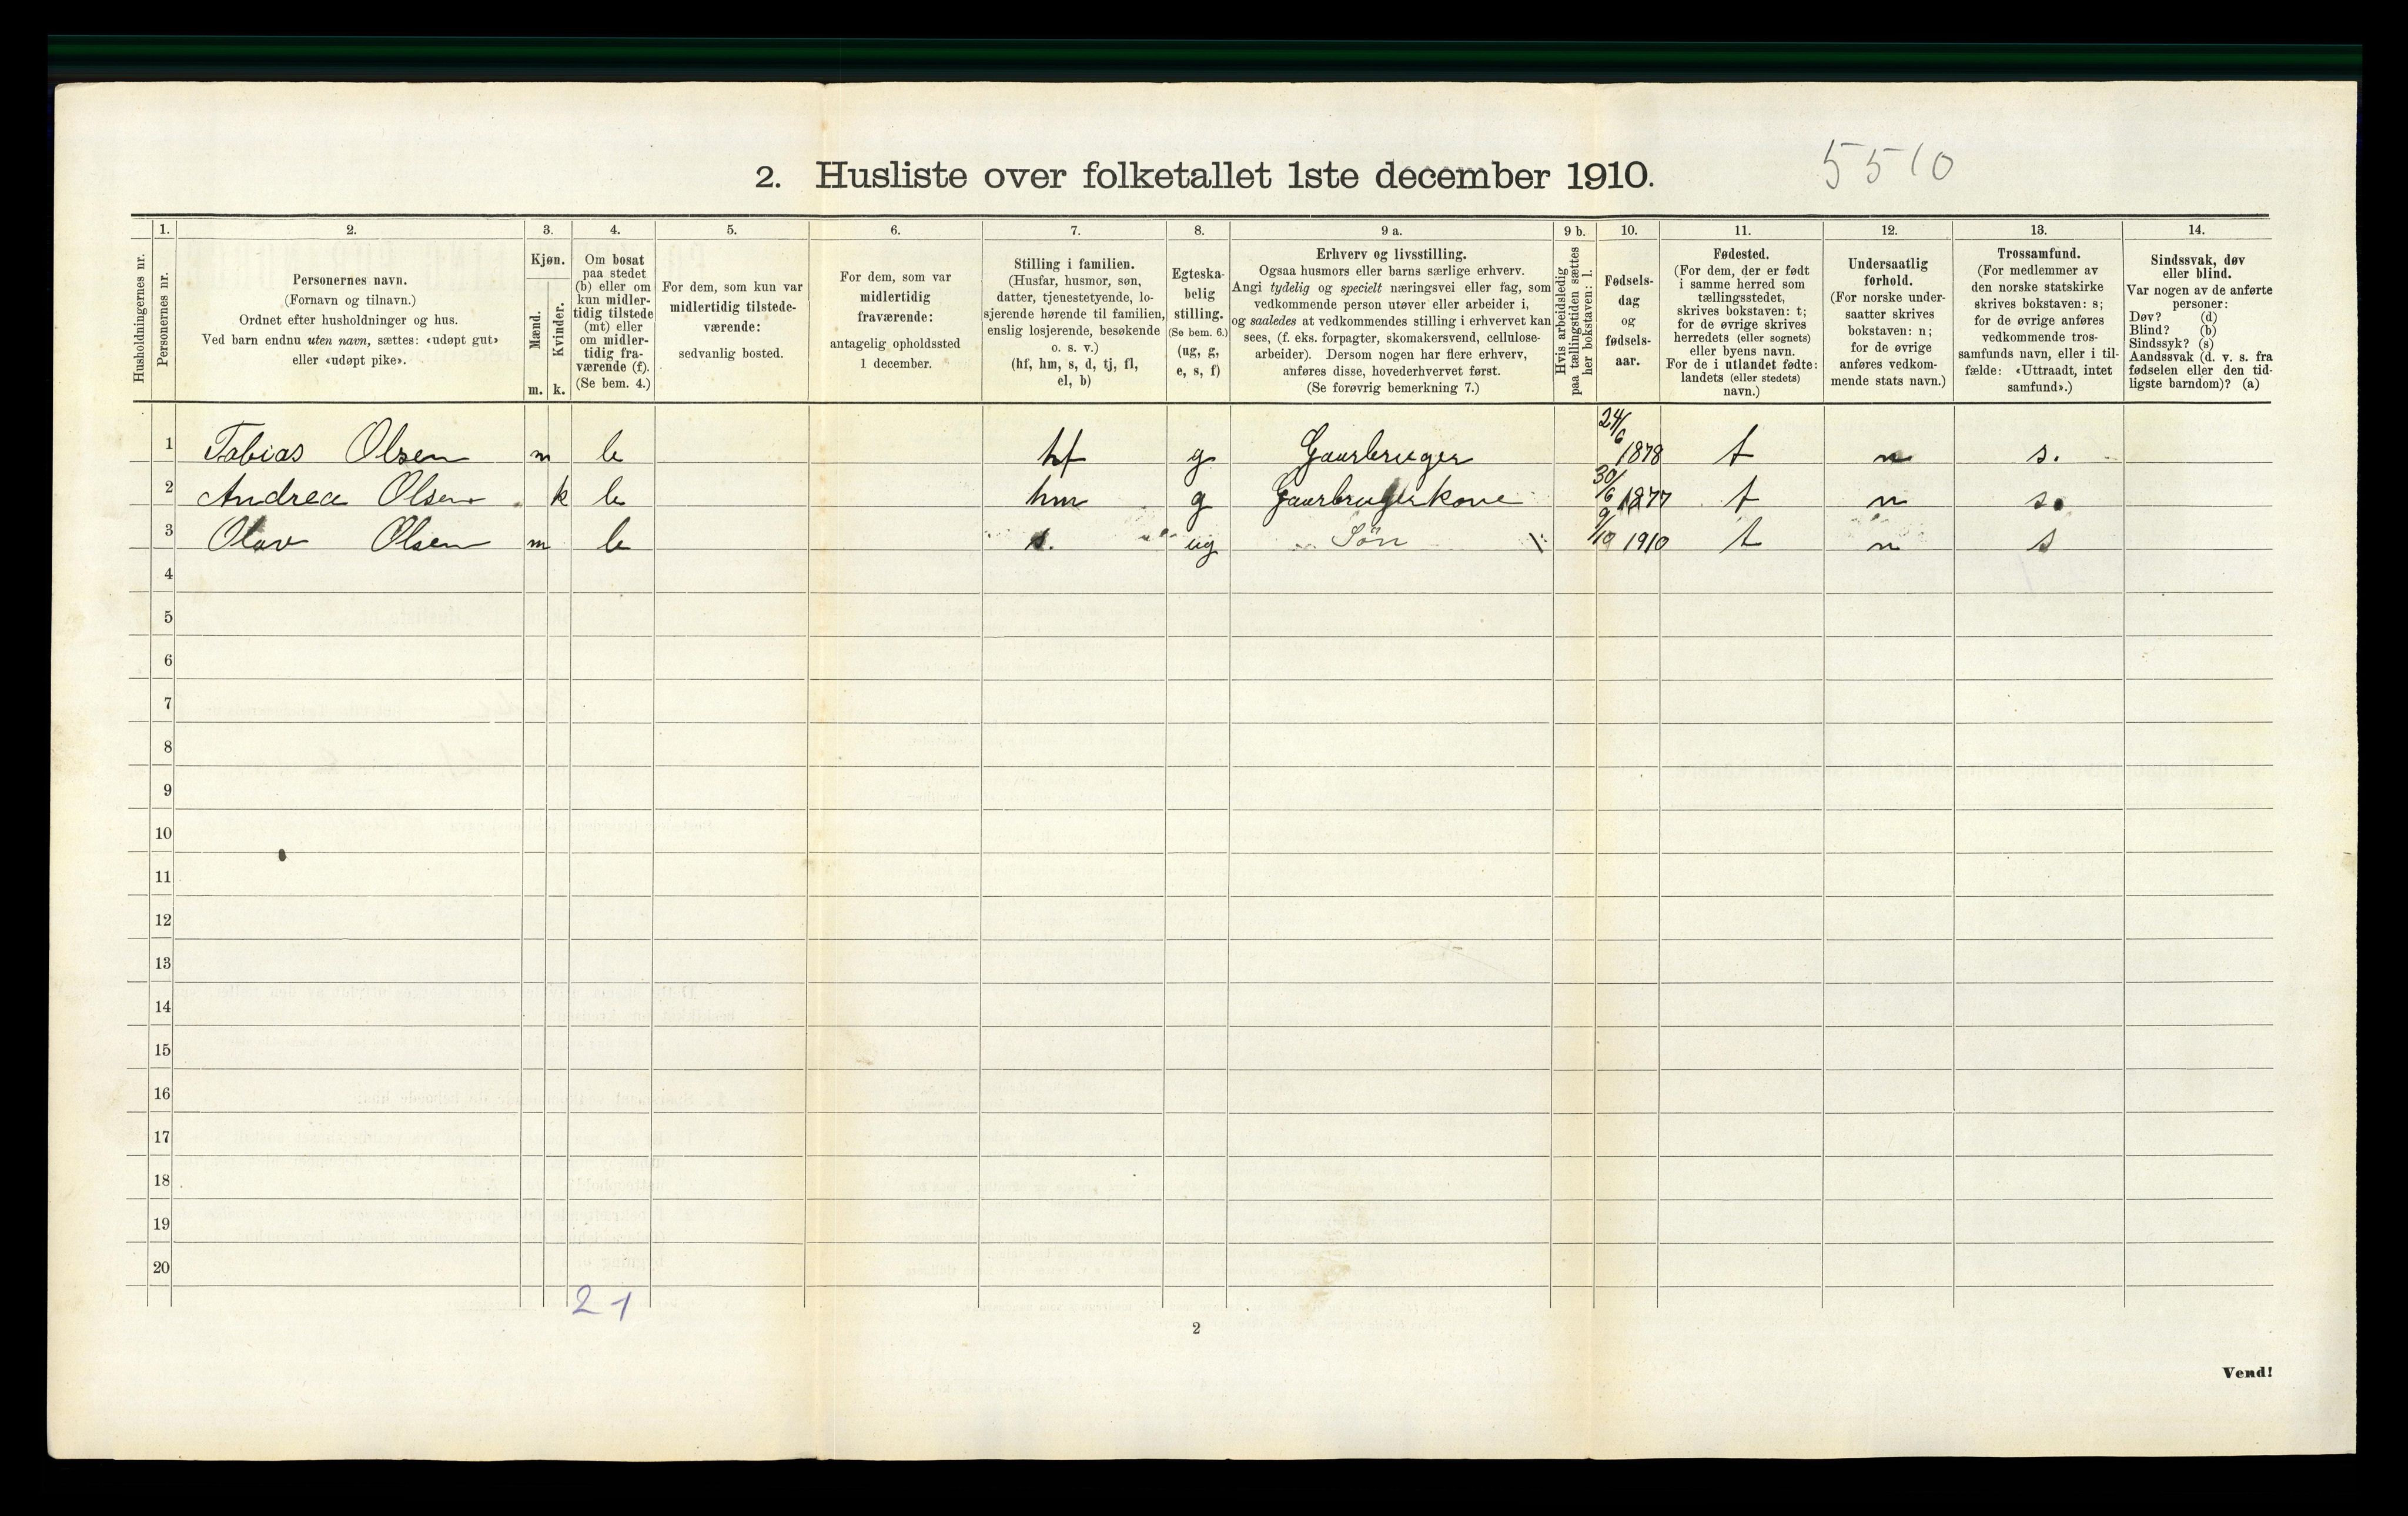 2. Husliste over folketallet 1ste december 1910.
5510
1. 2. 3. 4. 5. 6. 7. 8. 9 a. 9 b. 10. 11. 12. 13. 14.
Husholdningernes nr.
Personernes nr.
Personernes navn.
(Fornavn og tilnavn.)
Ordnet efter husholdninger og hus.
Ved barn endnu uten navn, sættes: «udøpt gut»
eller «udøpt pike».
Kjøn.
Mænd.
m.
Kvinder.
k.
Om bosat
paa stedet
(b) eller om
kun midler-
tidig tilstede
(mt) eller
om midler-
tidig fra-
værende (f).
(Se bem. 4.)
For dem, som kun var
midlertidig tilstede-
værende:
sedvanlig bosted.
For dem, som var
midlertidig
fraværende:
antagelig opholdssted
1 december.
Stilling i familien.
(Husfar, husmor, søn,
datter, tjenestetyende, lo-
sjerende hørende til familien,
enslig losjerende, besøkende
o. s. v.)
(hf, hm, s, d, tj, fl,
el, b)
Egteska-
belig
stilling.
(Se bem. 6.)
(ug, g,
e, s, f)
Erhverv og livsstilling.
Ogsaa husmors eller barns særlige erhverv.
Angi tydelig og specielt næringsvei eller fag, som
vedkommende person utøver eller arbeider i,
og saaledes at vedkommendes stilling i erhvervet kan
sees, (f. eks. forpagter, skomakersvend, cellulose-
arbeider). Dersom nogen har flere erhverv,
anføres disse, hovederhvervet først.
(Se forøvrig bemerkning 7.)
Hvis arbeidsledig
paa tællingstiden sættes
her bokstaven: l.
Fødsels-
dag
og
fødsels-
aar.
Fødested.
(For dem, der er født
i samme herred som
tællingsstedet,
skrives bokstaven: t;
for de øvrige skrives
herredets (eller sognets)
eller byens navn.
For de i utlandet fødte:
landets (eller stedets)
navn.)
Undersaatlig
forhold.
(For norske under-
saatter skrives
bokstaven: n;
for de øvrige
anføres vedkom-
mende stats navn.)
Trossamfund.
(For medlemmer av
den norske statskirke
skrives bokstaven: s;
for de øvrige anføres
vedkommende tros-
samfunds navn, eller i til-
fælde: «Uttraadt, intet
samfund».)
Sindssvak, døv
eller blind.
Var nogen av de anførte
personer:
Døv? (d)
Blind? (b)
Sindssyk? (s)
Aandssvak (d. v. s. fra
fødselen eller den tid-
ligste barndom)? (a)
1 Tobias Olsen m b hf g Gaurbruger 24/6 1878 t n s.
2 Andrea Olsen k b hm g Gaurbrugerkone 30/6 1877 t n s.
3 Olav Olsen m b s. ug Søn 9/10 1910 t n s
4
5
6
7
8
9
10
11
12
13
14
15
16
17
18
19
20
2 1
2
Vend!